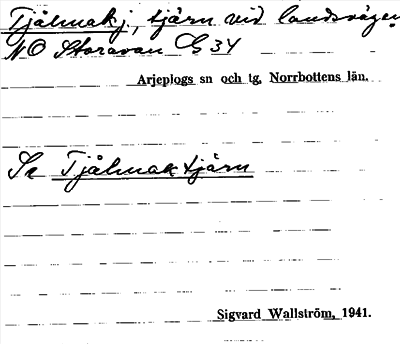 Tjålmakj, tjärn vid landsvägen
NO Storavan G 34
Arjeplogs sn och tg, Norrbottens län.
Se Tjålmaktjärn
Sigvard Wallström, 1941.